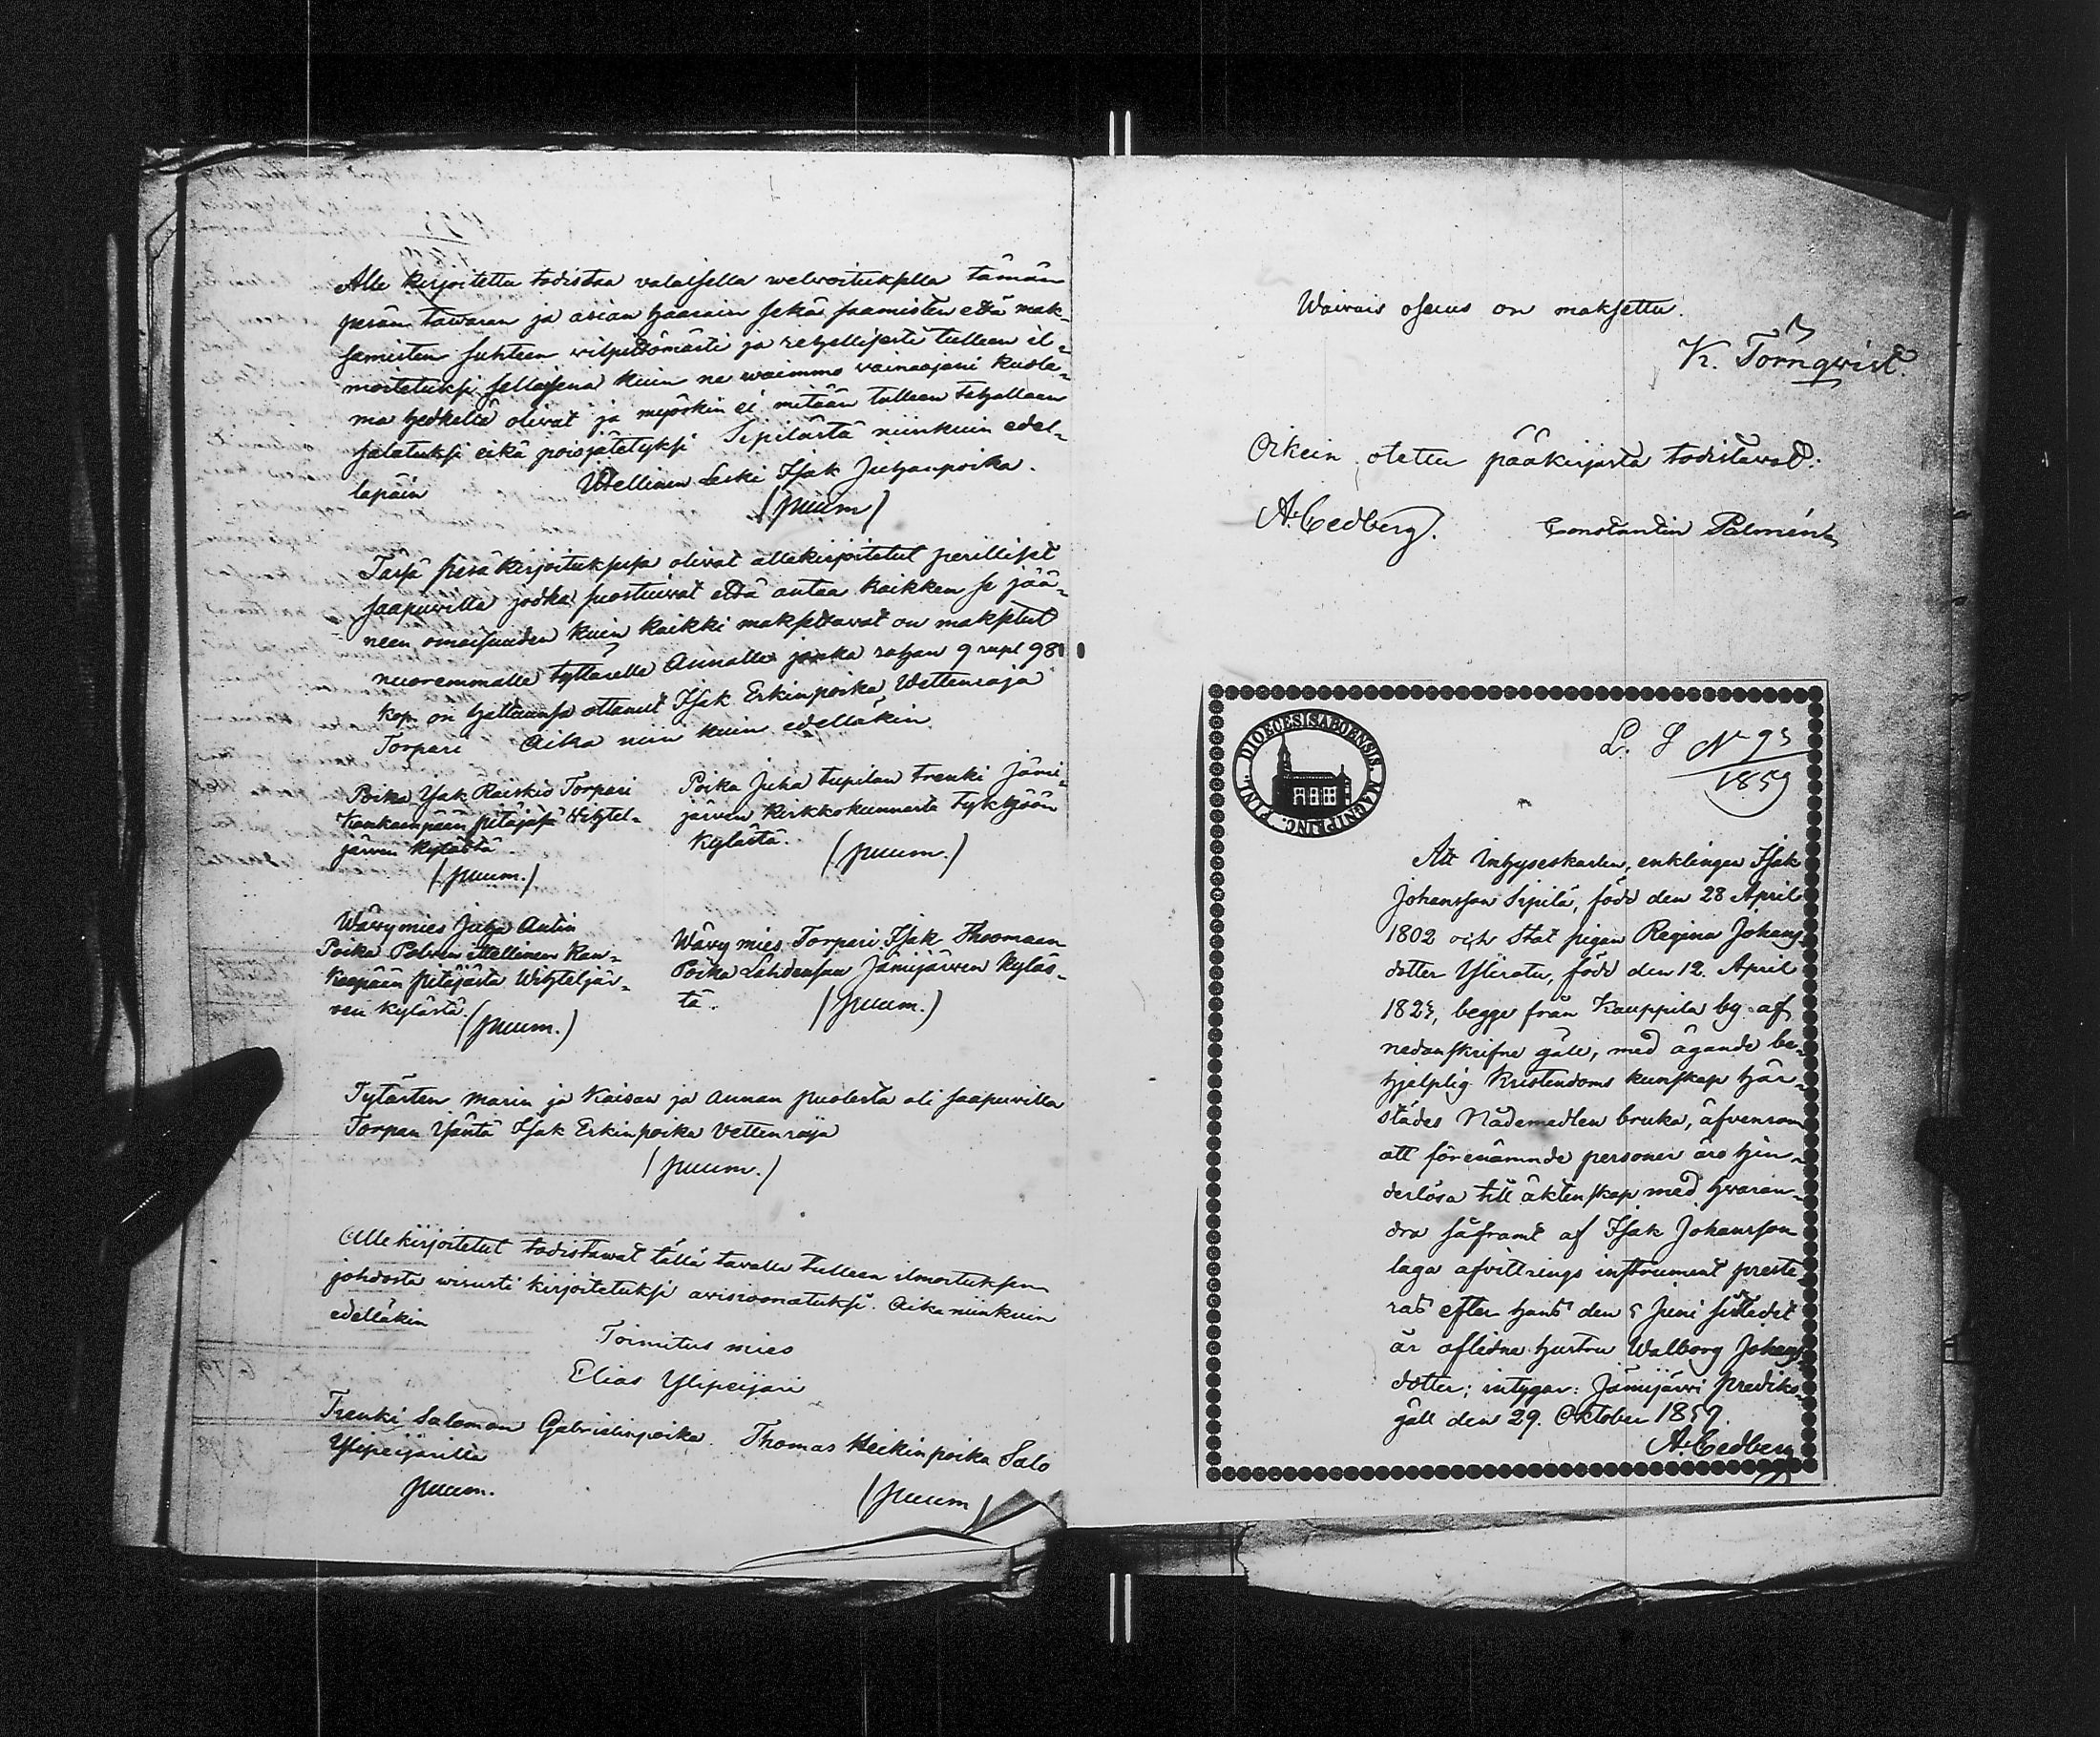 Alle kirjoitettu todistaa valalisella welwoituksella tämän
perän tawaran ja asian haarain sekä saamisten että mak-
samisten suhteen wilpittömästi ja rehellisesti tulleen il-
moitetuksi sellaisena kuin ne waimmo vainaajani kuole-
ma hetkellä olivat ja myöskin ei mitään tulleen tahallaan
salatuksi eikä poisjätetyksi Sipilästä niinkuin edel-
läpäin
Ittellinen Leski Isak Juhanpoika.
(puum)
Tässä peräkirjoituksessa olivat allekirjoitetut perilliset
saapuvilla jodka suostuivat että antaa kaikken se jää-
neen omaisuuden kuin kaikki maksettavat on maksetut
nuoremmalle tyttarelle Annalle jonka rahan 9 rupl 98
kop. on haltuunsa ottanut Isak Erkinpoika Wettenraja
Torpari Aika niin kuin edelläkin
Poika Isak Raiskio Torpari
Kankaanpään pitäjäsä Wihtel-
järven kylästä
(puum.)
Poika Juha tupilan trenki Jämi-
järven kirkkokunnasta Tykköön
kylästä.
(puum.)
Wävy mies Juha Antin
Poika Polven ittellinen Kan-
kaapään pitäjästä Wihteljär-
ven kylästä.
(puum.)
Wävy mies Torpari Isak Thoomaan
Poika Lahdensuu Jämijärwen kyläs-
tä.
(puum.)
Tytärten Marin ja Kaisan ja Annan puolesta oli saapuvilla
Torpan Isäntä Isak Erkinpoika Vettenraja
(puum.)
Alle kirjoitetut todistawat tällä tavalla tulleen ilmoituksen
johdosta wisusti kirjoitetuksi arvioomatuksi. Aika niinkuin
edelläkin
Toimitus mies
Elias Ylipeijari
Trenki Salomon Gabrielinpoika
Ylipeijarilla
puum.
Thomas Heikinpoika Salo
(puum)
Waivais osuus on maksettu.
K. Törnqvist.
Oikein otettu pääkirjasta todistavat:
A. Cedberg.
Constantin Palmén
DIOECESIS ABOENSIS. MAGNI PRINC. FINL.
L. S No 93
1859
Att Inhyseskarlen, enklingen Isak
Johansson Sipilä, född den 28 April
1802 och Stat pigan Regina Johans-
dotter Yliratu, född den 12. April
1823, begge från Kauppila by af
nedanskrifne gäll, med ägande be-
hjelplig Kristendoms kunskap här-
städes Nådemedlen bruka, äfvensom
att förenämnde personer äro hin-
derlösa till äktenskap med hvaran-
dra såframt af Isak Johansson
laga afvittrings instrument preste-
rats efter hans den 5 Juni sistledit
år aflidne hustru Walborg Johans-
dotter; intygar: Jämijärvi Prediko-
gäll den 29. Oktober 1859.
A. Cedberg